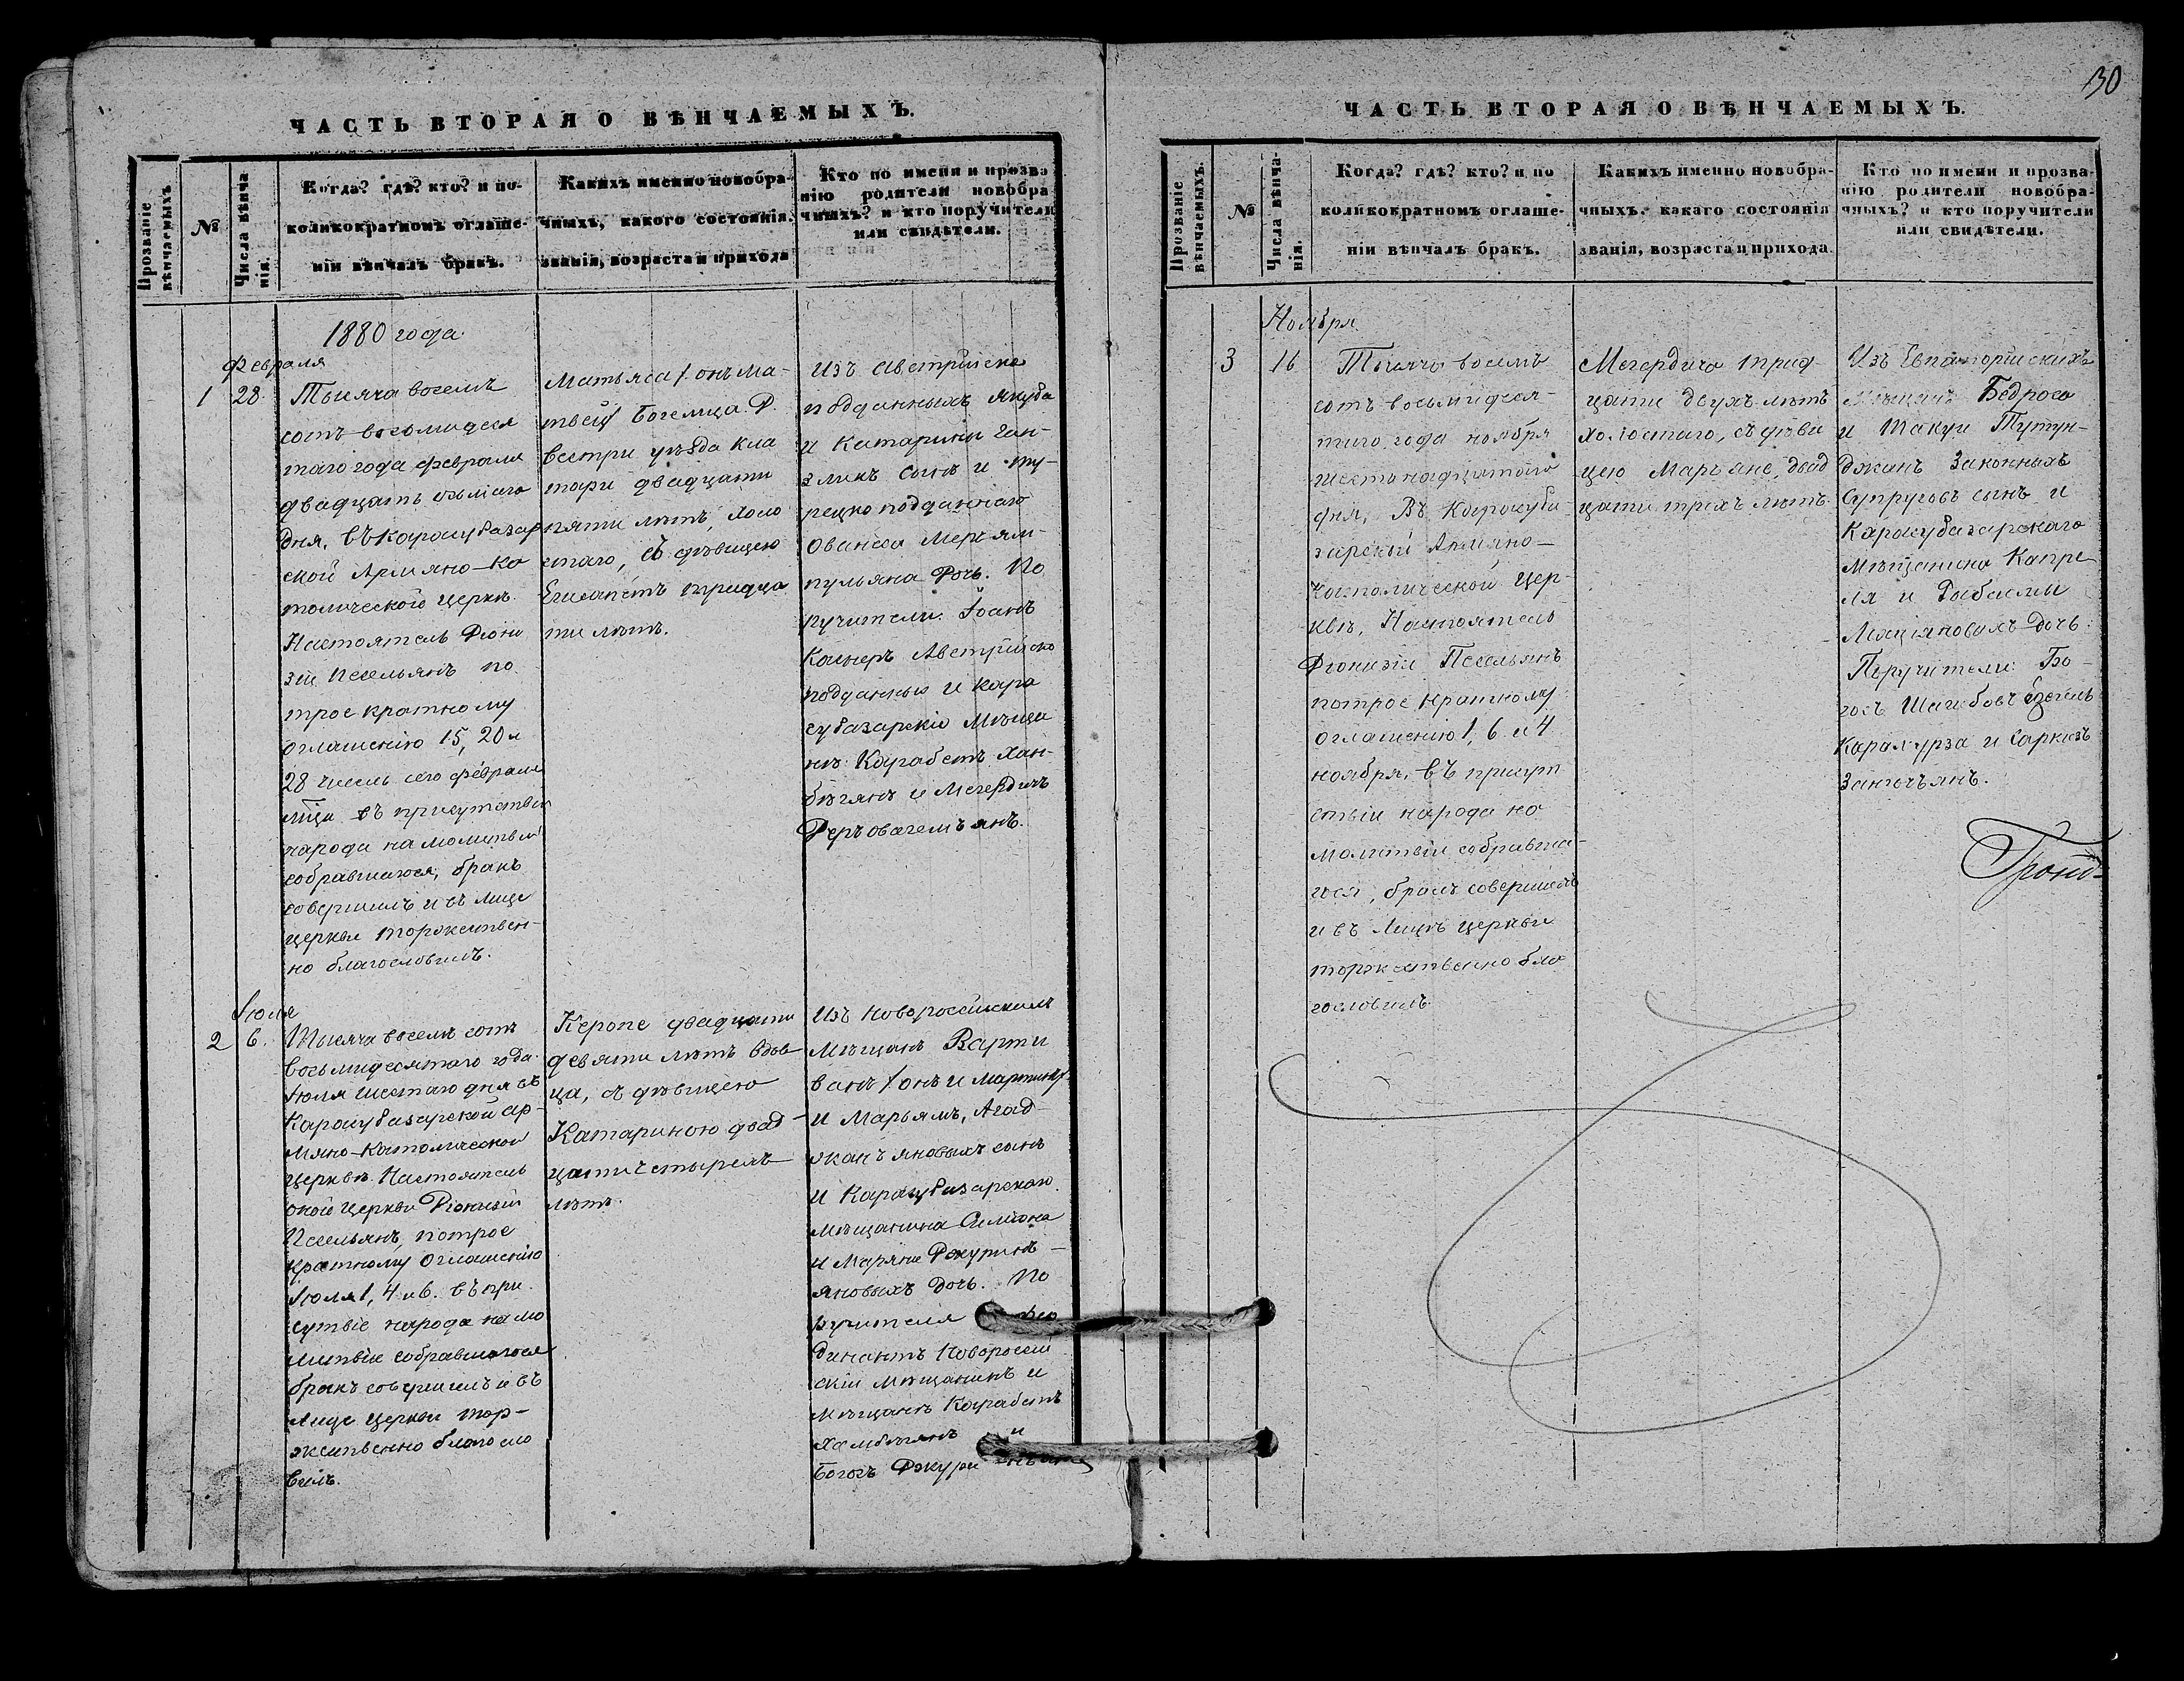 130
ЧАСТЬ ВТОРАЯ О ВѢНЧАЕМЫХЪ.
Прозваніе вѣнчаемыхъ
№
Числа вѣнча
нія.
Когда? гдѣ? кто? и по-
коликократномъ оглаше-
ніи вѣнчалъ бракъ.
Какихъ именно новобра-
чныхъ, какого состоянія.
званія, возраста и прихода
Кто по имени и прозва
нію родители новобра
чныхъ? и кто поручители
или свидѣтели.
1880 года.
Февраля
1 28.
Тысяча восемь
сотъ восьмидеся
таго года февраля
двадцать осьмаго
дня, въ Карасубазар
ской Армяно-Ка
толической церкв.
Настоятель Діони
зій Песельянъ по
трое кратному
оглашенію 15, 20 и
28 чиселъ сего февраля
мѣца въ присутствіи
народа на молитвы
собравшагося, бракъ
совершилъ и въ лице
церкви торжествен-
но благословилъ.
Матьяса /онъ Ма-
твей/ Богемца Р.
вестри уѣзда Кла
тари двадцати
пяти лѣтъ, холо
стаго, съ дѣвицею
Егисапетъ тридца
ти лѣтъ.
Изъ Австрійско
подданныхъ Якуба
и Катарины Ган-
зликъ сынъ и ту-
рецко подданнаго
Ованеса Мерьям-
пульяна дочь. По
ручители. Іоанъ
Каинеръ Австрійско
подданный и Кара
субазарскіе Мѣща
не: Карабетъ Хан-
бѣгянъ и Мегердичъ
Деръ овагемъянъ.
Іюля
2 6.
Тысяча восемь сотъ
восьмидесятаго года
Іюля шестаго дня въ
Карасубазарской Ар-
мяно-Католической
церквѣ. Настоятель
оной церкви Діонизій
Песельянъ, потрое
кратному оглашенію
Іюля 1, 4 и 6. въ при
сутвіе народа на мо
литвы собравшагося
бракъ совершилъ и въ
лице церкви тор-
жественно благосло
вилъ.
Керопе двадцати
девяти лѣтъ вдов-
ца, съ дѣвицею
Катариною двад-
цати четырехъ
лѣтъ.
Изъ Новороссійскихъ
Мѣщанъ Варти
ванъ /онъ и Мартинъ/
и Марьямъ, Агад-
жанъяновыхъ сынъ
и Карасубазарскаго
мѣщанина Симона
и Маряне Джуринъ-
яновыхъ дочь. По
ручителя Фер
динантъ Новороссій
скій мѣщанинъ и
Мѣщанъ Карабетъ
Хамбѣгянъ и
Богосъ Джури
ЧАСТЬ ВТОРАЯ О ВѢНЧАЕМЫХЪ.
Прозваніе
вѣнчаемыхъ.
№
Числа вѣнча-
нія.
Когда? гдѣ? кто? и по
коликократномъ оглаше-
ніи вѣнчалъ бракъ.
Какихъ именно новобра-
чныхъ. какаго состоянія
званія, возраста и прихода.
Кто по имени и прозва-
нію родители новобра-
чныхъ? и кто поручители
или свидѣтели.
Ноября
3 16
Тысяча восемь
сотъ восьмидеся-
таго года ноября
шестонадцатаго
дня, Въ Карасуба-
зарской Армяно-
Католической Цер-
квѣ, Настоятель
Діонизій Песельянъ
потрое кратному
оглашенію 1, 6 и 4
ноября, въ присут
ствіи народа на
молитвы собравша-
гося, бракъ совершилъ
и въ лицѣ церкви
торжественно бла
гословилъ.
Мегердича трид-
цати двухъ лѣтъ
холостаго, съ дѣви
цею Марьяне, двад
цати трехъ лѣтъ.
Изъ Евпаторійскихъ
мѣщанъ Бедроса
и Такуи Тутун-
джанъ Законныхъ
Супруговъ сынъ и
Карасубазарскаго
Мѣщанина Капре
ля и
дочь
Поручители: Бо-
госъ Шагибовъ
Карамурза и Саркизъ
Занечъянъ.